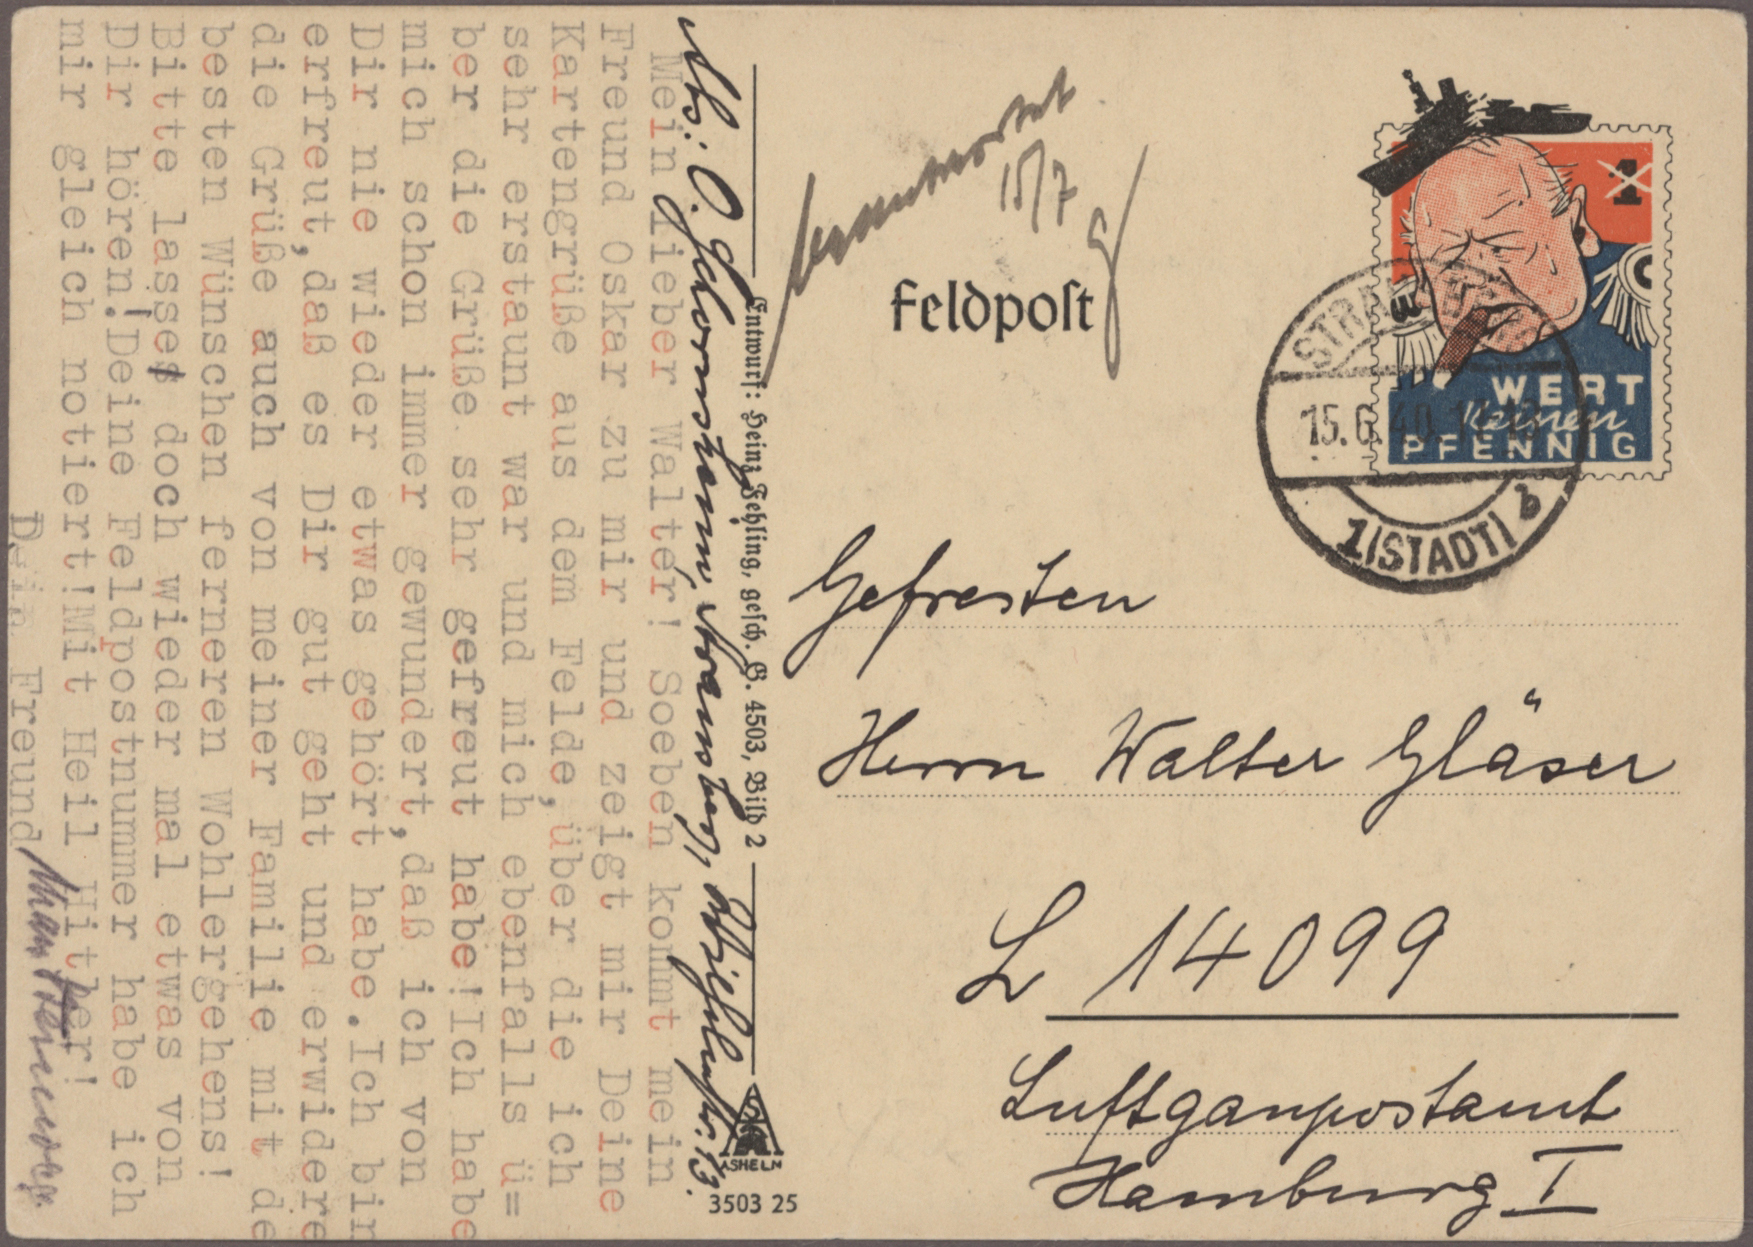 beantwortet
15/7
Feldpost
1
WERT
Keinen
PFENNIG
15.6.40.
1(STADT)
b
Gefreiten
Herrn Walter Gläser
L 14099
Luftgaupostamt
Hamburg I
Entwurf: Heinz Fehling, gesch. G. 4503, Bild 2
ASHELM
3503 25
Abs: O.
Mein lieber Walter! Soeben kommt mein
Freund Oskar zu mir und zeigt mir Deine
Kartengrüße aus dem Felde,über die ich
sehr erstaunt war und mich ebenfalls ü=
ber die Grüße sehr gefreut habe!Ich habe
mich schon immer gewundert,daß ich von
Dir nie wieder etwas gehört habe.Ich bin
erfreut,daß es Dir gut geht und erwidere
die Grüße auch von meiner Familie mit de
besten Wünschen ferneren Wohlergehens!
Bitte lasse doch wieder mal etwas von
Dir hören!Deine Feldpostnummer habe ich
mir gleich notiert!Mit Heil Hitler!
Dein Freund